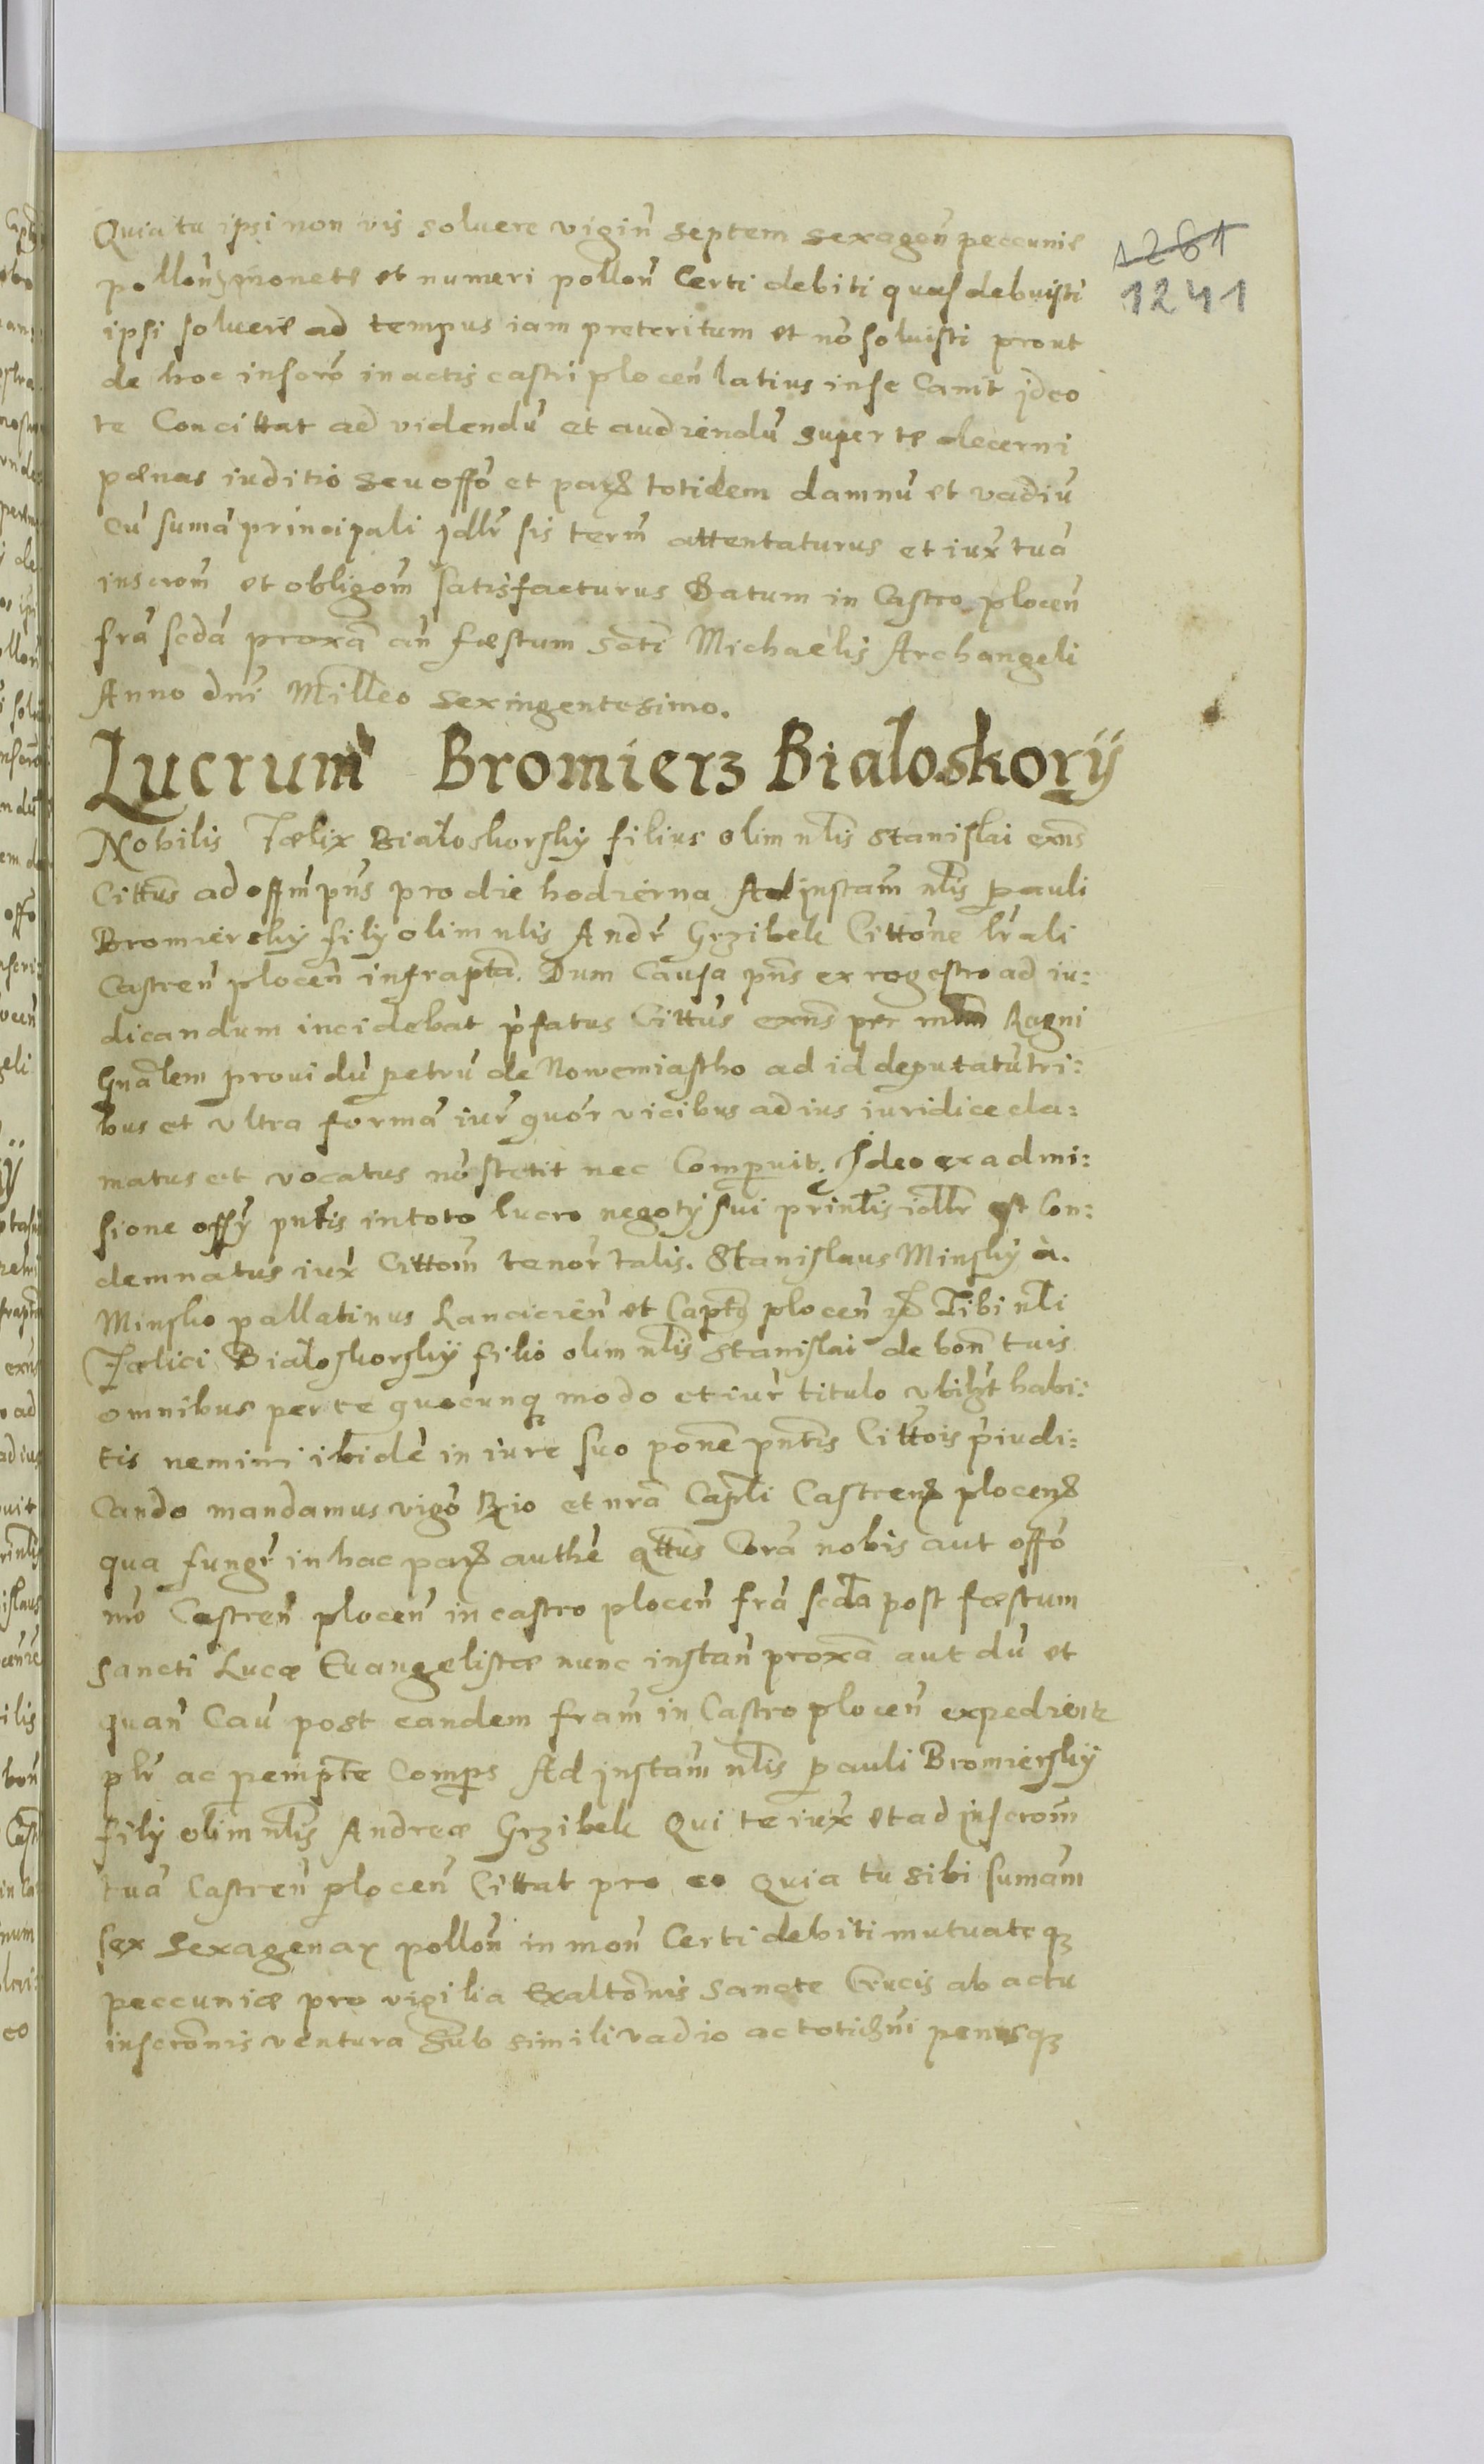 Quia tu ipsi non vis soluere vigin̄ septem sexagen̄ peccunie
pollon̄ monete et numeri pollon̄ Certi debiti quas debuisti
ipsi soluere ad tempus iam preteritum et nō soluisti prout
de hoc inscrō in actis castri plocen̄ latius in se Canit jdeo
te Concittat ad videndū et audiendū super te decerni
pœnas iuditio seu offō et par totidem damnū et vadiū
Cū sumā principali jdlr̄ sis term̄ attentaturus et iux̄ tuā
inscrom̄ et obligom̄ satisfacturus Datum in Castro plocen̄
frā scdā proxā an̄ fæstum Scti Michaelis Archangeli
Anno dni Milleo sexingentesimo.
Lucrum Bromierz Bialoskorÿ
Nobilis Fælix Bialoskorskÿ filius olim nlis Stanislai exn̄s
Cittūs ad offm̄ pn̄s pro die hodierna Ad jnstam̄ nlis pauli
Bromierskÿ filÿ olim nlis Andr̄ Grzibek Cittōne lr̄ali
Castren̄ plocen̄ infraptā. Dum Causa pn̄s ex regestro ad iu:
dicandum incidebat p̄fatus Cittūs exn̄s per mlm̄ Regni
Gnālem prouidū petrū de Nowemiastho ad id deputatū tri:
bus et vltra formā iur̄ quor̄ vicibus ad ius iuridice cla:
matus et vocatus nō stetit nec Comparuit. Jdeo ex admi:
sione offÿ pntis in toto lucro negotÿ sui prinlis idlr̄ est Con:
demnatus iux̄ Cittom̄ tenor̄ talis. Stanislaus Minskÿ à.
Minsko pallatinus Lancicien̄ et Capts plocen̄ Tibi nli
Fælici Bialoskorskÿ filio olim nlis Stanislai de bon̄ tuis
omnibus per te quocunq modo et iur̄ titulo vbilt habi:
tis nemini ibidē in iure suo ponē pntis Cittōis p̄iudi:
Cando mandamus vigō Rio et nrā Capli Castren plocen
qua fungr̄ in hac par authē qttūs Corā nobis aut offō
nrō Castren̄ plocen̄ in castro plocen̄ frā scda post fæstum
sancti Lucæ Euangelistæ nunc instan̄ proxā aut dū et
quan̄ Cau post eandem fram̄ in Castro plocen̄ expedient
plr̄ ac pempte Comprs Ad jnstam̄ nlis pauli Bromierskÿ
filÿ olim nlis Andreæ Grzibek Qui te iux̄ et ad jnscrom̄
tuā Castren̄ plocen̄ Cittat pro eo Quia tu sibi sumam̄
sex Sexagenar pollon̄ in mon̄ Certi debiti mutuateq
peccuniæ pro vigilia Exaltōnis Sancte Crucis ab actu
inscrōnis ventura Sub simili vadio ac totidni penisq
1261
1241